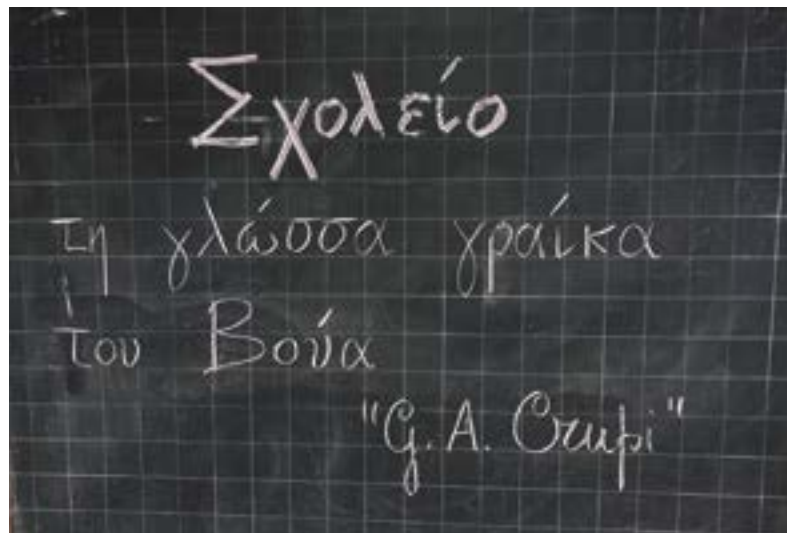 Σχολείο
τη γλώσσα γραίκα
του Βούα
"G. A. Crupi"